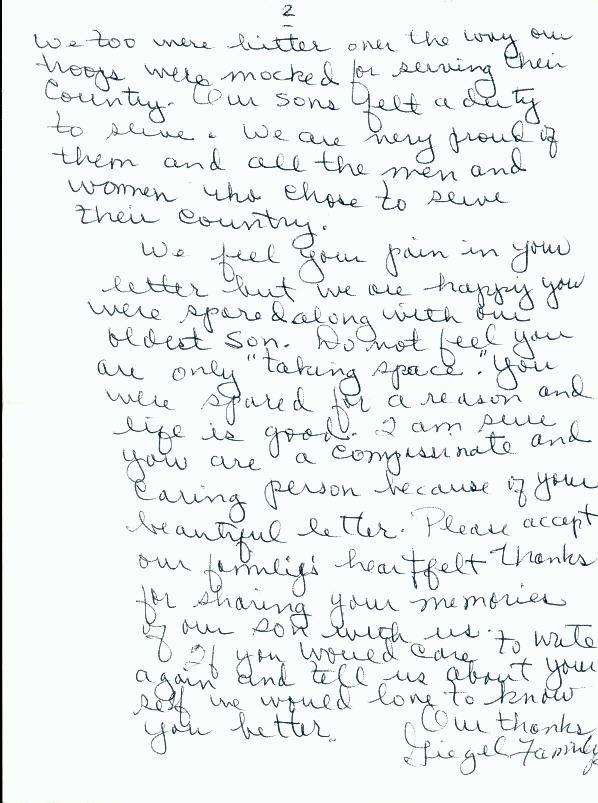 2
We too were bitter over the way our
troops were mocked for serving their
Country. Our sons felt a duty
to serve. We are very proud of
them and all the men and
women who chose to serve
their country.
We feel your pain in your
letter but we are happy you
were spared along with our
oldest son. Do not feel you
are only "taking space". You
were spared for a reason and
life is good. I am sure
you are a compassionate and
caring person because of your
beautiful letter. Please accept
our family's heartfelt thanks
for sharing your memories
of our son with us.
If you would care to write
again and tell us about your
self we would love to know
you better. Our thanks
Giegel Family